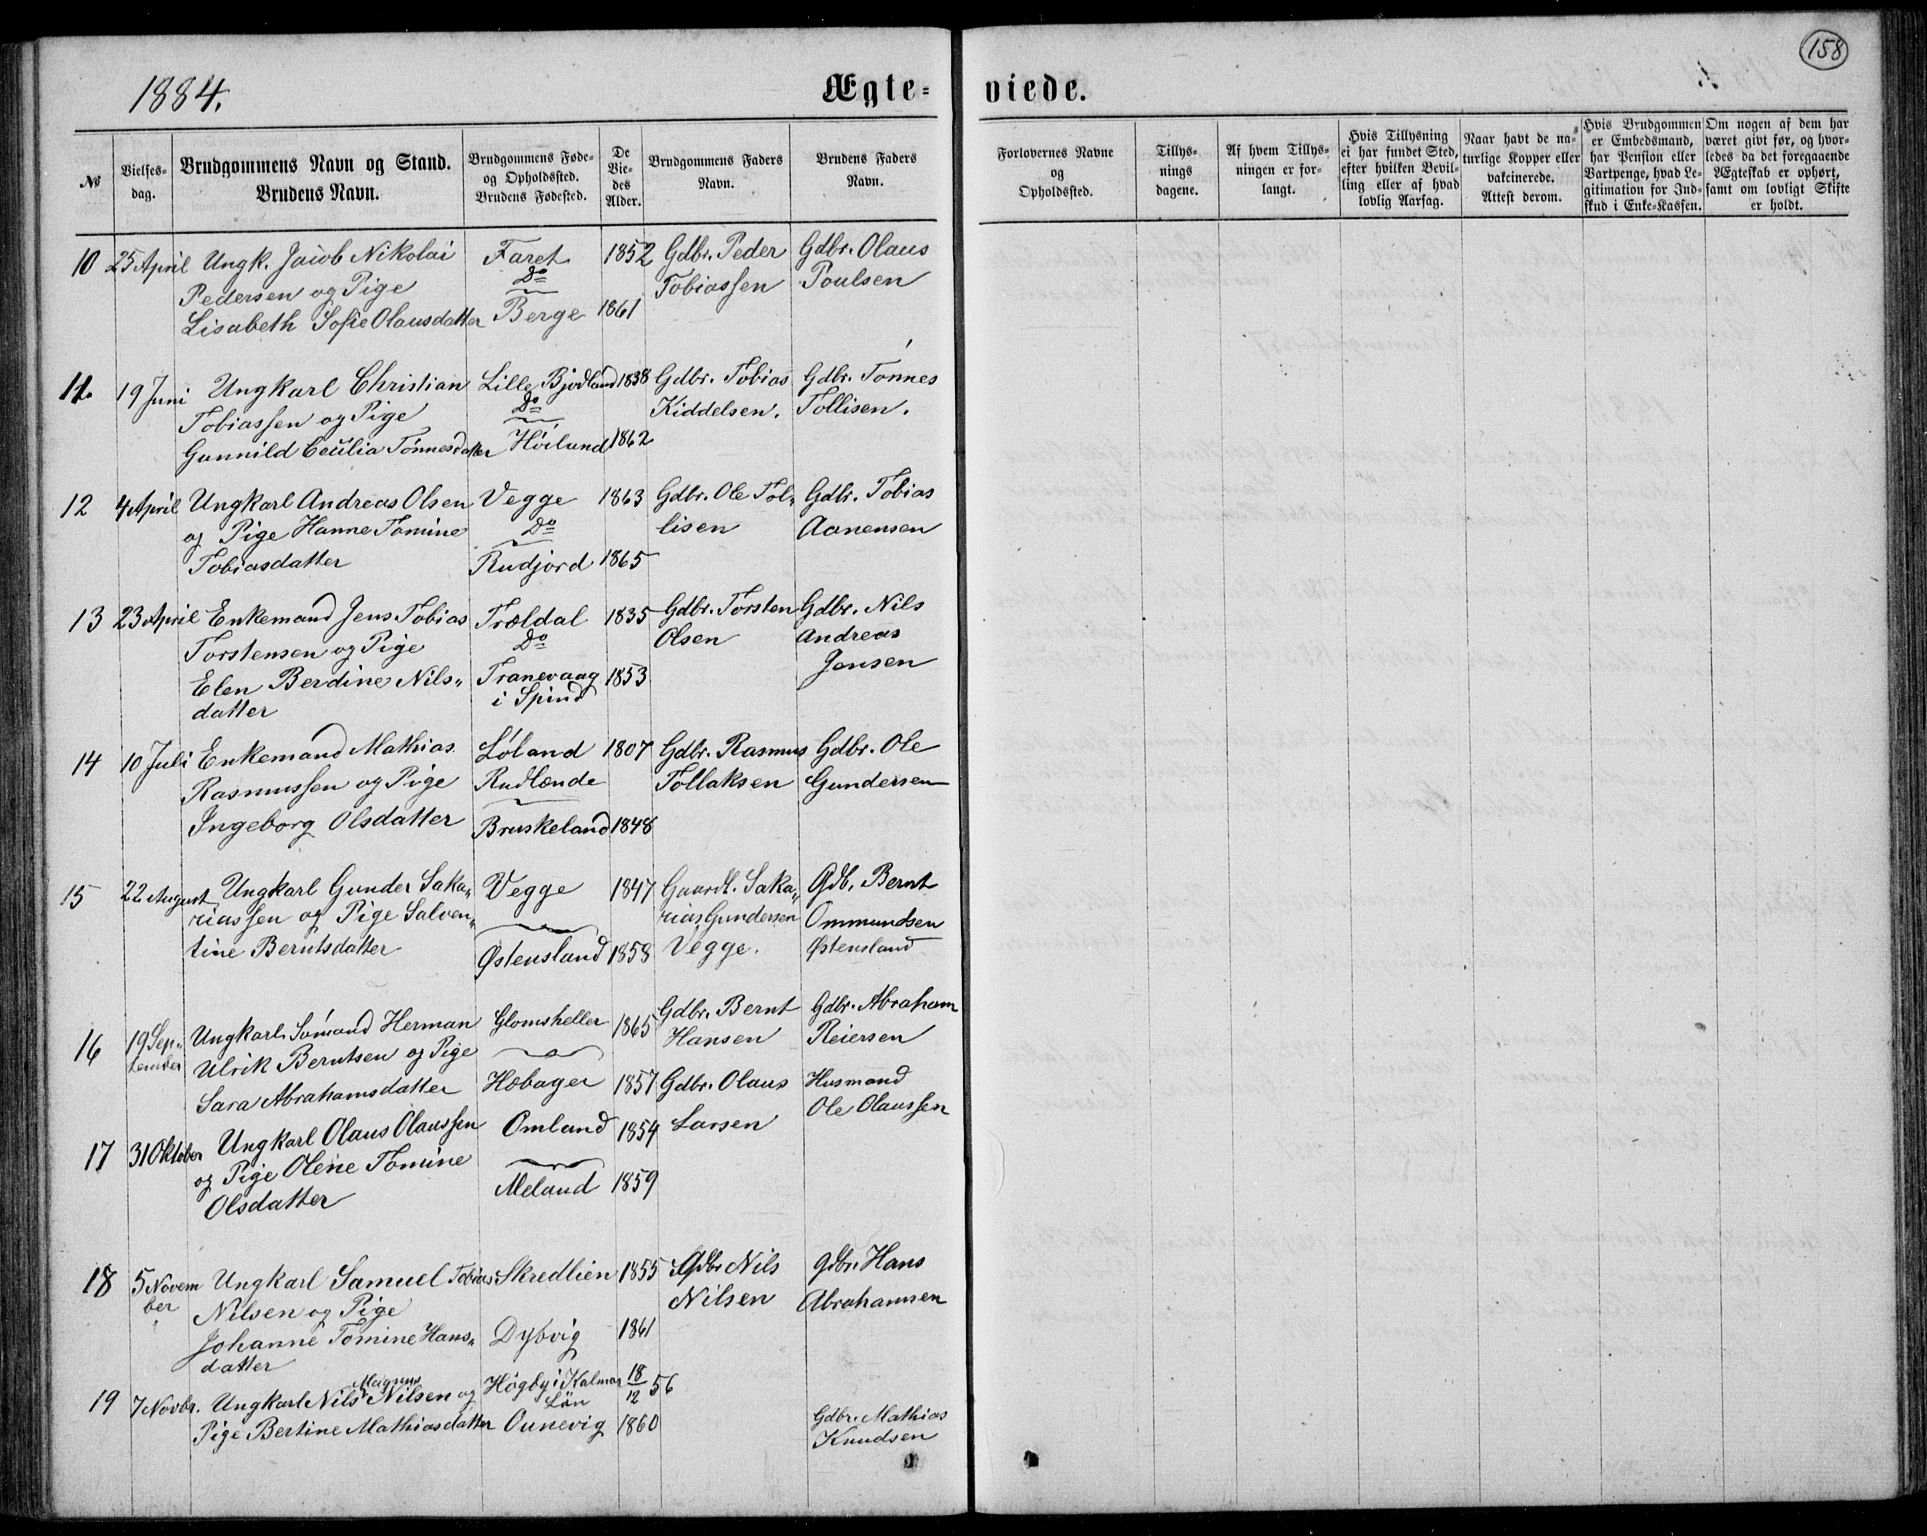 158
1884.
Ægte= viede.
No
Vielses-
dag.
Brudgommens Navn og Stand.
Brudens Navn.
Brudgommens Føde-
og Opholdssted.
Brudens Fødested.
De
Vie-
des
Alder.
Brudgommens Faders
Navn.
Brudens Faders
Navn.
Forlovernes Navne
og
Opholdssted.
Tillys-
nings
dagene.
Af hvem Tillys-
ningen er for-
langt.
Hvis Tillysning
ei har fundet Sted,
efter hvilken Bevil-
ling eller af hvad
lovlig Aarsag.
Naar havt de na-
turlige Kopper eller
vakcinerede.
Attest derom.
Hvis Brudgommen
er Embedsmand,
har Pension eller
Vartpenge, hvad Le-
gitimation for Ind-
skud i Enke-Kassen.
Om nogen af dem har
været givt før, og hvor-
ledes da det foregaaende
Ægteskab er ophørt,
samt om lovligt Skifte
er holdt.
10 25 April Ungk. Jacob Nikolai Faret 1852 Gdbr. Peder Gdbr. Olaus
Pedersen og Pige Do Tobiassen Poulsen
Lisabeth Sofie Olausdatter Berge 1861
11. 19 Juni Ungkarl Christian Lille Bjodland 1838 Gdbr. Tobias Gdbr. Tønnes
Tobiassen og Pige Do Kiddelsen. Tollisen.
Gunnild Cecilia Tønnesdatter Høiland 1862
12 4 April Ungkarl Andreas Olsen Vegge 1863 Gdbr. Ole Tol„ Gdbr. Tobias
og Pige Hanne Tomine Do lisen Aanensen
Tobiasdatter Rudjord 1865
13 23 April Enkemand Jens Tobias Trældal 1835 Gdbr. Torsten Gdbr. Nils
Torstensen og Pige Do Olsen Andreas
Elen Berdine Nils„ Tranevaag 1853 Jensen
datter i Spind
14 10 Juli Enkemand Mathias Løland 1807 Gdbr. Rasmus Gdbr. Ole
Rasmussen og Pige Rudlænde Tollaksen Gundersen
Ingeborg Olsdatter Bruskeland 1848
15 22 August Ungkarl Gunder Saka„ Vegge 1847 Gaardb. Saka„ Gdb. Bernt
riassen og Pige Salven„ rias Gundersen Ommundsen
tine Berntsdatter Østensland 1858 Vegge. Østensland
16 19 Sep„ Ungkarl Sømand Herman Glomsheller 1865 Gdbr. Bernt Gdbr. Abraham
tember Ulrik Berntsen og Pige Hansen Reiersen
Sara Abrahamsdatter Hæbager 1857 Gdbr. Olaus Husmand
17 31 Oktober Ungkarl Olaus Olaussen Omland 1854 Larsen Ole Olaussen
og Pige Olene Tomine
Olsdatter Meland 1859
18 5 Novem Ungkarl Samuel Tobias Skredlien 1855 Gdbr Nils Gdbr. Hans
ber Nilsen og Pige Nilsen Abrahamsen
Johanne Tomine Hans„ Dybvig 1861
datter
19 7 Novbr. Ungkarl Nils Magnus Nilsen og Högby i Kalmar 18/12 56
Län
Pige Bertine Mathiasdatter Ounevig 1860 Gdbr. Mathias
Knudsen